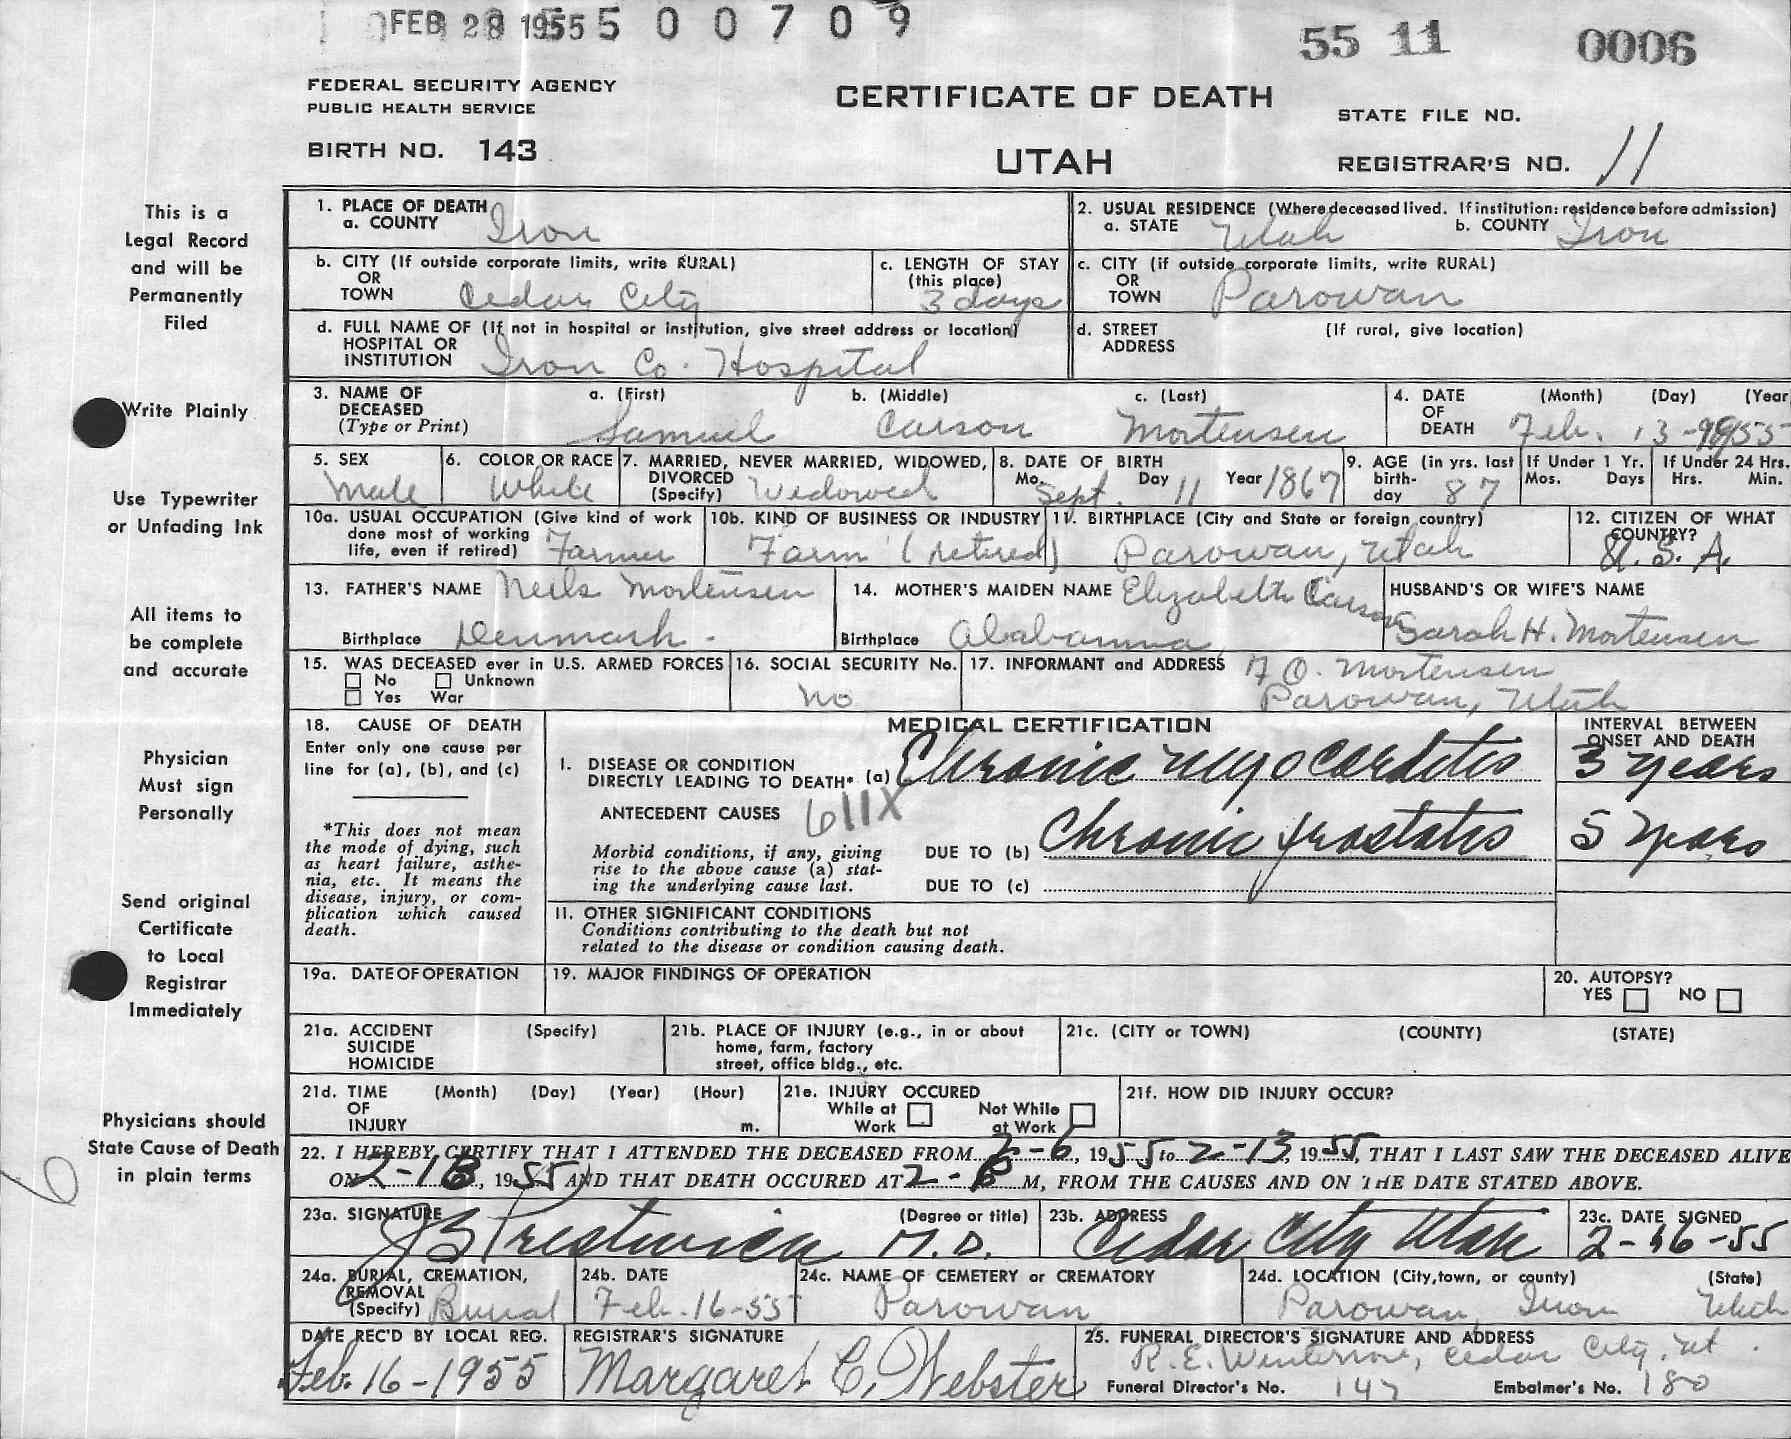 FEB 28 1955 5 0 0 7 0 9
55 11 0006
FEDERAL SECURITY AGENCY
PUBLIC HEALTH SERVICE
BIRTH NO. 143
CERTIFICATE OF DEATH
UTAH
STATE FILE NO.
REGISTRAR'S NO. 11
This is a
Legal Record
and will be
Permanently
Filed
Write Plainly
Use Typewriter
or Unfading Ink
All items to
be complete
and accurate
Physician
Must sign
Personally
Send original
Certificate
to Local
Registrar
Immediately
Physicians should
State Cause of Death
in plain terms
6
1. PLACE OF DEATH
a. COUNTY Iron
2. USUAL RESIDENCE (Where deceased lived. If institution: residence before admission)
a. STATE Utah b. COUNTY Iron
b. CITY (If outside corporate limits, write RURAL)
OR
TOWN Cedar City
c. LENGTH OF STAY
(this place)
3 days
c. CITY (if outside corporate limits, write RURAL)
OR
TOWN Parowan
d. FULL NAME OF (If not in hospital or institution, give street address or location)
HOSPITAL OR
INSTITUTION Iron Co. Hospital
d. STREET (If rural, give location)
ADDRESS
3. NAME OF a. (First) b. (Middle) c. (Last)
DECEASED
(Type or Print) Samuel Carson Mortensen
4. DATE (Month) (Day) (Year
OF
DEATH Feb. 13-1955
5. SEX
Male
6. COLOR OR RACE
White
7. MARRIED, NEVER MARRIED, WIDOWED,
DIVORCED
(Specify) Widowed
8. DATE OF BIRTH
Mo. Sept. Day 11 Year 1867
9. AGE (in yrs. last
birth-
day 87
If Under 1 Yr.
Mos. Days
If Under 24 Hrs.
Hrs. Min.
10a. USUAL OCCUPATION (Give kind of work
done most of working
life, even if retired) Farmer
10b. KIND OF BUSINESS OR INDUSTRY
Farm (retired)
11. BIRTHPLACE (City and State or foreign country)
Parowan, Utah
12. CITIZEN OF WHAT
COUNTRY?
U. S. A.
13. FATHER'S NAME Neils Mortensen
Birthplace Denmark.
14. MOTHER'S MAIDEN NAME Elizabeth Carson
Birthplace Alabamma
HUSBAND'S OR WIFE'S NAME
Sarah H. Mortensen
15. WAS DECEASED ever in U.S. ARMED FORCES
No Unknown
Yes War
16. SOCIAL SECURITY No.
no
17. INFORMANT and ADDRESS O. Mortensen
Parowan, Utah
18. CAUSE OF DEATH
Enter only one cause per
line for (a), (b), and (c)
*This does not mean
the mode of dying, such
as heart failure, asthe-
nia, etc. It means the
disease, injury, or com-
plication which caused
death.
MEDICAL CERTIFICATION
I. DISEASE OR CONDITION
DIRECTLY LEADING TO DEATH* (a) Chronic myocarditis
ANTECEDENT CAUSES 611X
Morbid conditions, if any, giving
rise to the above cause (a) stat-
ing the underlying cause last.
DUE TO (b) Chronic prostatis
DUE TO (c)
II. OTHER SIGNIFICANT CONDITIONS
Conditions contributing to the death but not
related to the disease or condition causing death.
INTERVAL BETWEEN
ONSET AND DEATH
3 years
5 years
19a. DATE OF OPERATION
19. MAJOR FINDINGS OF OPERATION
20. AUTOPSY?
YES NO
21a. ACCIDENT (Specify)
SUICIDE
HOMICIDE
21b. PLACE OF INJURY (e.g., in or about
home, farm, factory
street, office bldg., etc.
21c. (CITY or TOWN) (COUNTY) (STATE)
21d. TIME (Month) (Day) (Year) (Hour)
OF
INJURY m.
21e. INJURY OCCURED
While at Not While
Work at Work
21f. HOW DID INJURY OCCUR?
22. I HEREBY CERTIFY THAT I ATTENDED THE DECEASED FROM 2-6, 1955 to 2-13, 1955, THAT I LAST SAW THE DECEASED ALIVE
ON 2-13, 1955, AND THAT DEATH OCCURED AT 2- P M, FROM THE CAUSES AND ON THE DATE STATED ABOVE.
23a. SIGNATURE (Degree or title)
J B Prestwich M.D.
23b. ADDRESS
Cedar City Utah
23c. DATE SIGNED
2-16-55
24a. BURIAL, CREMATION,
REMOVAL
(Specify) Burial
24b. DATE
Feb. 16-55
24c. NAME OF CEMETERY or CREMATORY
Parowan
24d. LOCATION (City, town, or county) (State)
Parowan, Iron Utah
DATE REC'D BY LOCAL REG.
Feb. 16-1955
REGISTRAR'S SIGNATURE
Margaret C. Webster
25. FUNERAL DIRECTOR'S SIGNATURE AND ADDRESS
R. E. Winterrose, Cedar City, Ut.
Funeral Director's No. 147 Embalmer's No. 180